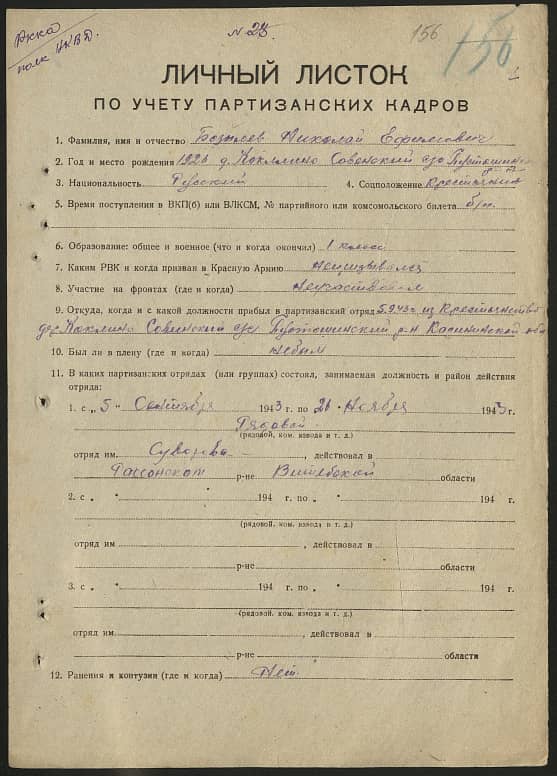 РККА
полк НКВД.
N 28
156
156
ЛИЧНЫЙ ЛИСТОК
ПО УЧЕТУ ПАРТИЗАНСКИХ КАДРОВ
1. Фамилия, имя и отчество Николай Ефимович
2. Год и место рождения 1926 д. Коклино Совенский с/с
3. Национальность Русский 4. Соцположение Крестьянин
5. Время поступления в ВКП(б) или ВЛКСМ, № партийного или комсомольского билета б/п
6. Образование: общее и военное (что и когда окончил) 1 класс
7. Каким РВК и когда призван в Красную Армию Непризывался
8. Участие на фронтах (где и когда) Неучаствовал
9. Откуда, когда и с какой должности прибыл в партизавский отряд 5.9.43г. из Крестьянство
дер. Коклино Совенский с/с р-н Калининской обл
10. Был ли в плену (где и когда) небыл
11. В каких партизанских отрядах (или группах) состоял, занимаемая должность и район действия
отряда:
1. с „ 5 " Сентября 1943 г. по „ 26 " Ноября 1943 г.
Рядовой
(рядовой, ком. взвода и т. д.)
отряд им. Суворова , действовал в
Рассонском р-не Витебской области
2. с „ " 194 г. по „ " 194 г.
(рядовой, ком. взвода и т. д.)
отряд им. , действовал в
р-не области
3. с „ " 194 г. по „ " 194 г.
(рядовой, ком. взвода и т. д.)
отряд им. , действовал в
р-не области
12. Ранения и контузии (где и когда) Нет